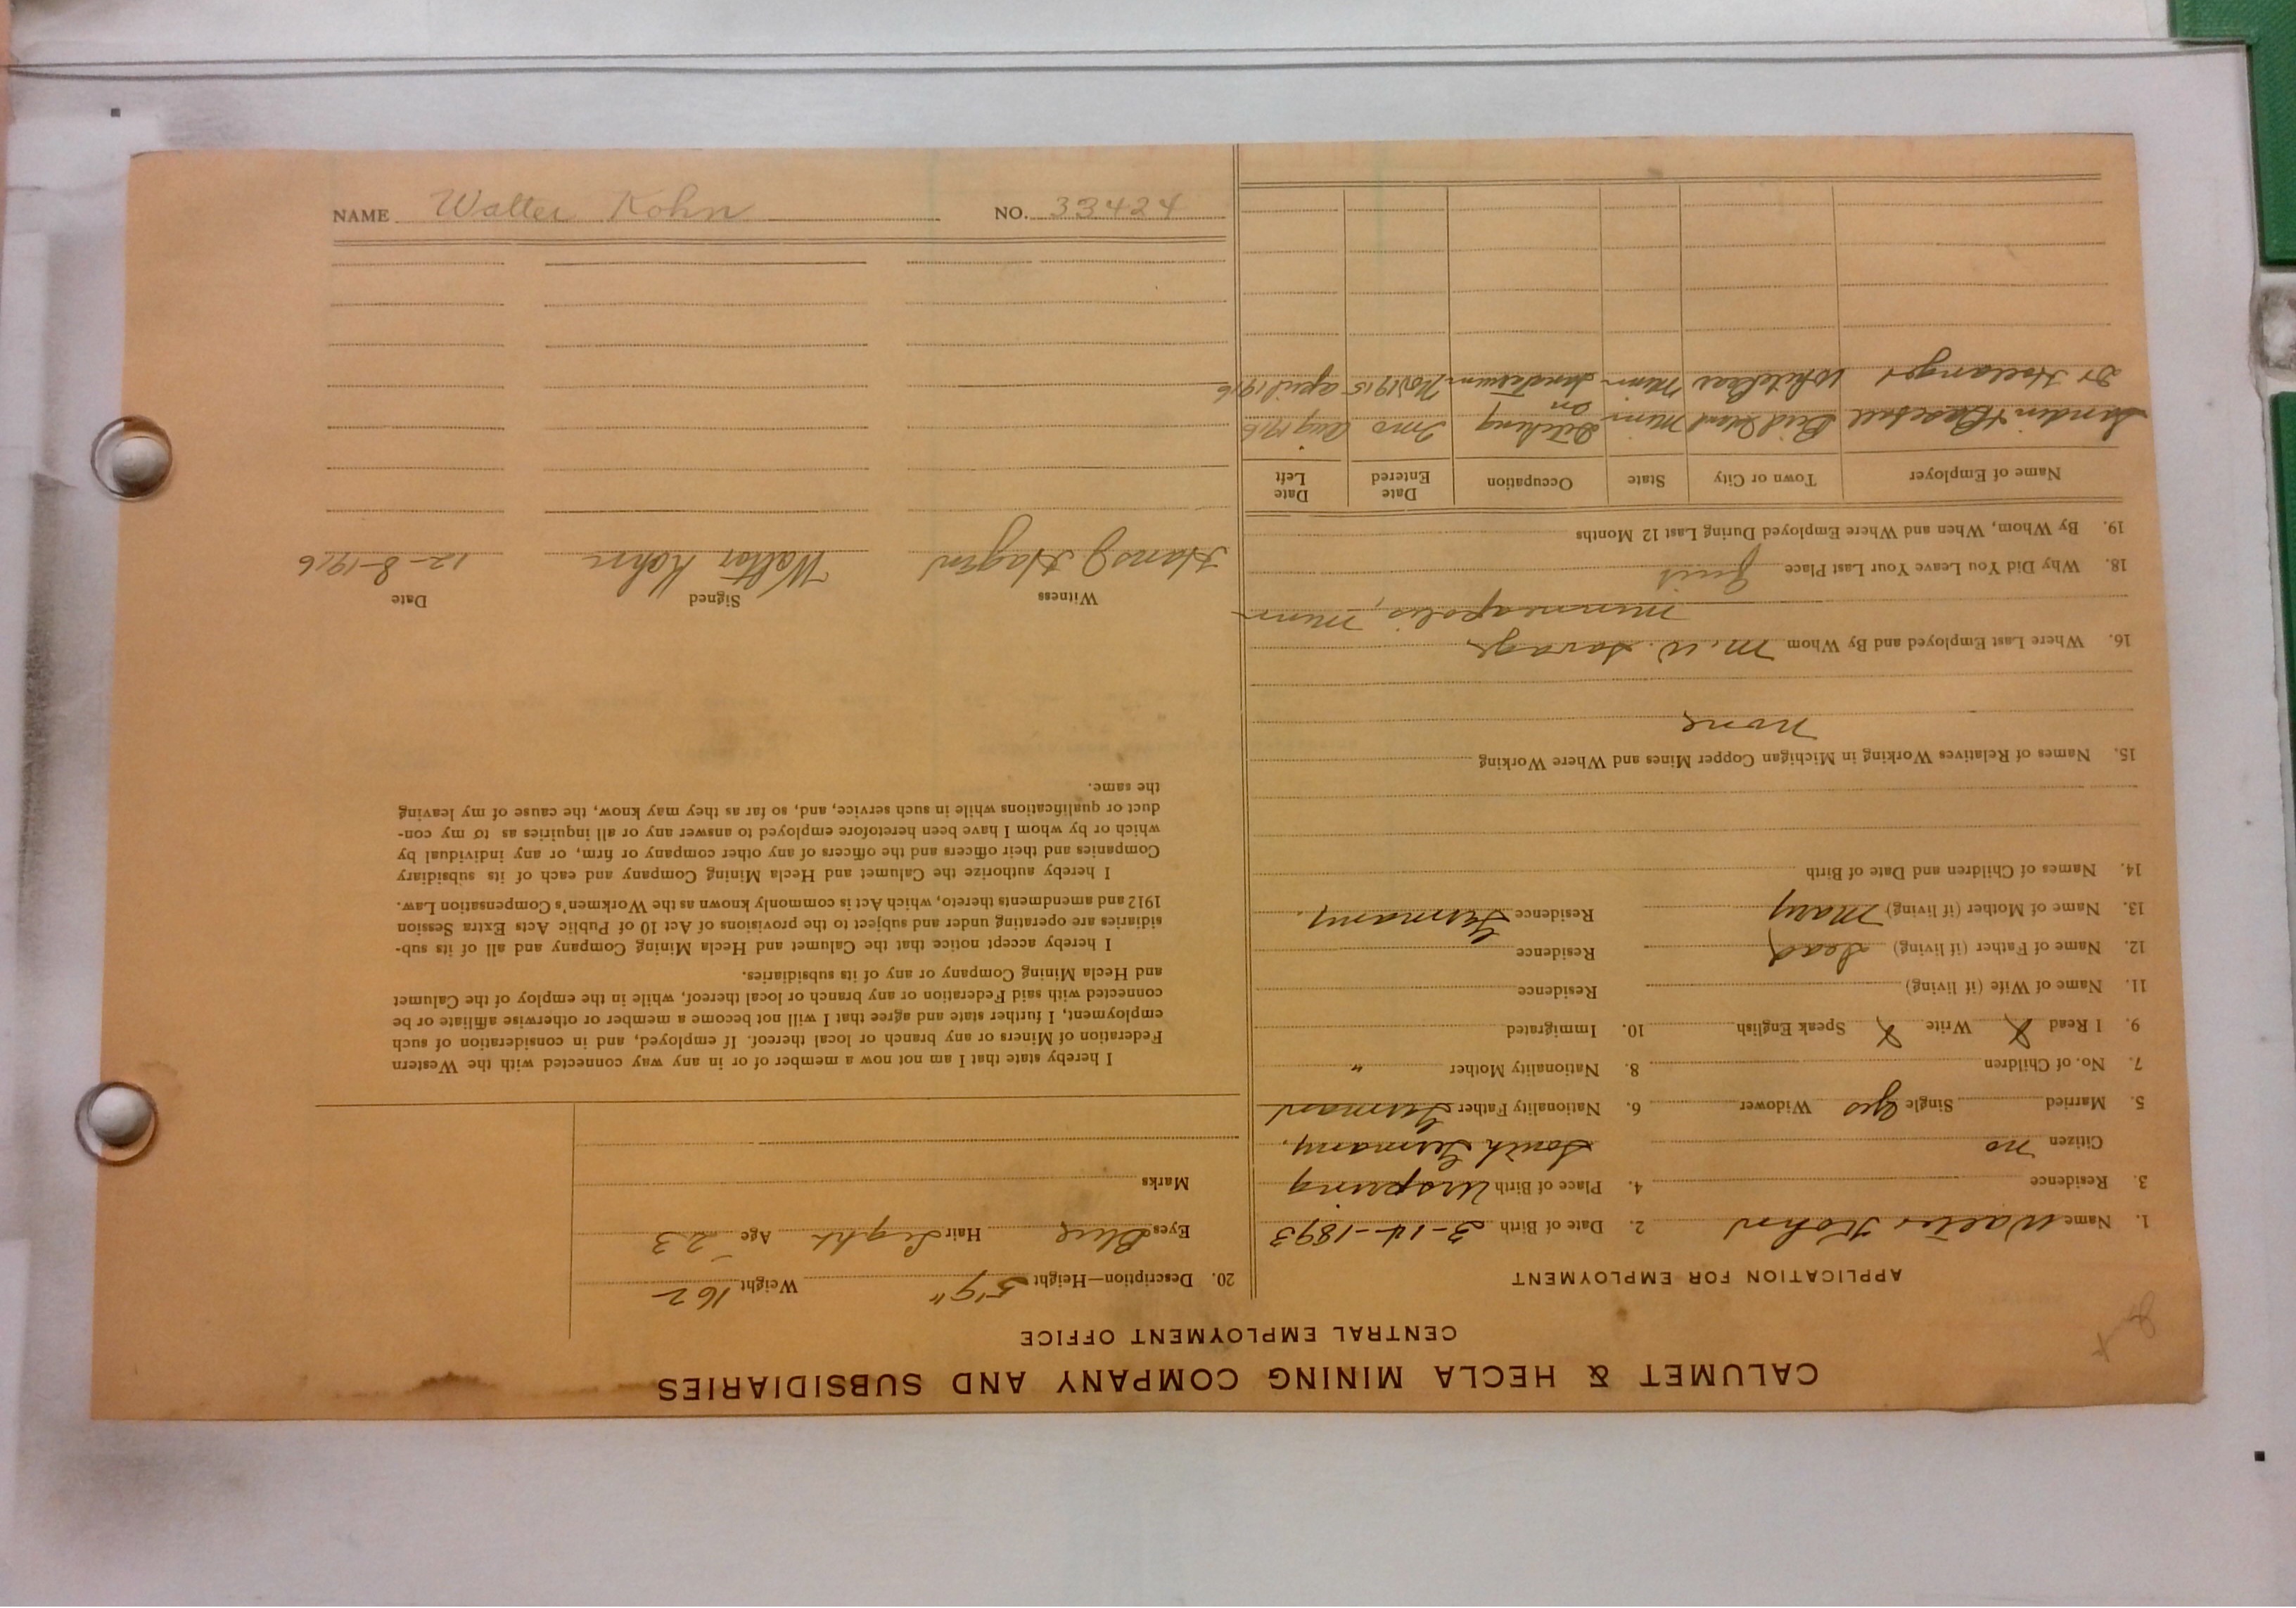 NAME Walter Kohn NO. 33424
CALUMET & HECLA MINING COMPANY AND SUBSIDIARIES
CENTRAL EMPLOYMENT OFFICE
APPLICATION FOR EMPLOYMENT
1. Name Walter Kohn 2. Date of Birth 3-14-1893
3. Residence 4. Place of Birth Urspring
Citizen no South Germany,
5. Married Single yes Widower 6. Nationality Father German
7. No. of Children 8. Nationality Mother "
9. I Read X Write X Speak English 10. Immigrated
11. Name of Wife (if living) Residence
12. Name of Father (if living) Dead Residence
13. Name of Mother (if living) Mary Residence Germany.
14. Names of Children and Date of Birth
15. Names of Relatives Working in Michigan Copper Mines and Where Working
none
16. Where Last Employed and By Whom M.W. Savage
Minneapolis, Minn
18. Why Did You Leave Your Last Place Quit
19. By Whom, When and Where Employed During Last 12 Months
Name of Employer Town or City State Occupation Date Entered Date Left
Minn Ditching 2 mo Aug 1916
Dr Minn Nov 1915 April 1916
20. Description—Height 5'9" Weight 162
Eyes Blue Hair Light Age 23
Marks
I hereby state that I am not now a member of or in any way connected with the Western
Federation of Miners or any branch or local thereof. If employed, and in consideration of such
employment, I further state and agree that I will not become a member or otherwise affiliate or be
connected with said Federation or any branch or local thereof, while in the employ of the Calumet
and Hecla Mining Company or any of its subsidiaries.
I hereby accept notice that the Calumet and Hecla Mining Company and all of its sub-
sidiaries are operating under and subject to the provisions of Act 10 of Public Acts Extra Session
1912 and amendments thereto, which Act is commonly known as the Workmen's Compensation Law.
I hereby authorize the Calumet and Hecla Mining Company and each of its subsidiary
Companies and their officers and the officers of any other company or firm, or any individual by
which or by whom I have been heretofore employed to answer any or all inquiries as to my con-
duct or qualifications while in such service, and, so far as they may know, the cause of my leaving
the same.
Date Signed Witness
12-8-1916 Walter Kohn Hans J Hagen